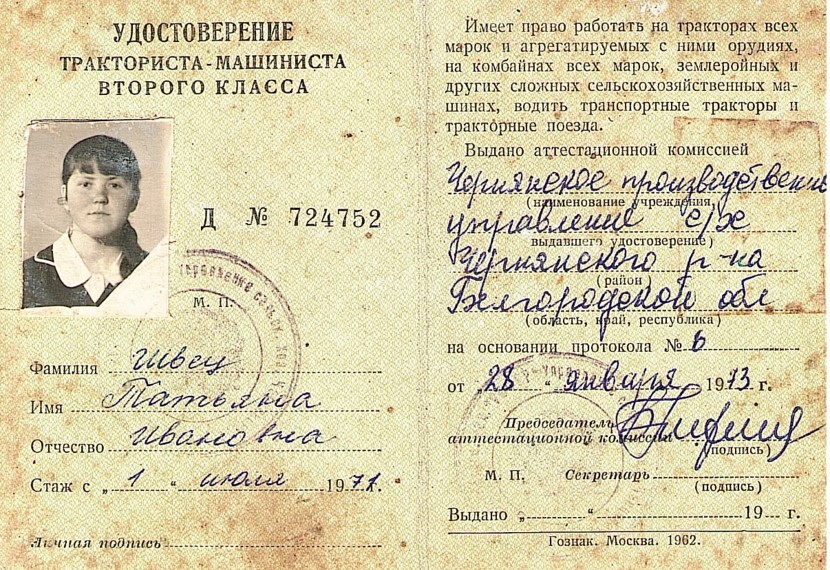 УДОСТОВЕРЕНИЕ
ТРАКТОРИСТА-МАШИНИСТА
ВТОРОГО КЛАССА
Д № 724752
М. П.
Фамилия Швец
Имя Татьяна
Отчество Ивановна
Стаж с „ 1 “ июля 1971 г.
Личная подпись
Имеет право работать на тракторах всех
марок и агрегатируемых с ними орудиях,
на комбайнах всех марок, землеройных и
других сложных сельскохозяйственных ма-
шинах, водить транспортные тракторы и
тракторные поезда.
Выдано аттестационной комиссией
Чернянское производственно
(наименование учреждения,
управление с/х
выдавшего удостоверение)
Чернянского р-на
(район
Белгородской обл
(область, край, республика)
на основании протокола № 6
от „ 28 “ января 1973 г.
Председатель
аттестационной комиссии
(подпись)
М. П. Секретарь
(подпись)
Выдано „ “ 19 г.
Гознак. Москва. 1962.